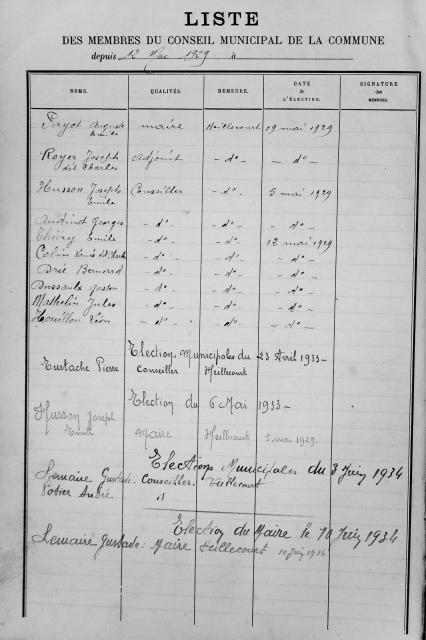 LISTE
DES MEMBRES DU CONSEIL MUNICIPAL DE LA COMMUNE
depuis 12 Mai 1929 à
NOMS. QUALITÉS. DEMEURE. DATE de L'ÉLECTION. SIGNATURE des MEMBRES.
Payot Auguste Emile maire Heillecourt 19 mai 1929
Royer Joseph dit Charles Adjoint - d° - - d° -
Husson Joseph Emile Conseiller - d° - 5 mai 1929
Audinot Georges - d° - - d° - - d° -
Thiéry Emile - d° - - d° - 12 mai 1929
Colin Louis - d° - - d° - - d° -
Brié Bernard - d° - - d° - - d° -
Dussaulx Gaston - d° - - d° - - d° -
Mathelin Jules - d° - - d° - - d° -
Houillon Léon - d° - - d° - - d° -
Election Municipales du 23 Avril 1933 -
Eustache Pierre Conseiller Heillecourt
Election du 6 Mai 1933 -
Husson Joseph Emile Maire Heillecourt mai 1929
Elections Municipales du 3 Juin 1934
Lemaire Gustave. Conseiller. Heillecourt
Potier André id
Election du Maire le 10 Juin 1934
Lemaire Gustave: Maire Heillecourt 10 Juin 1934